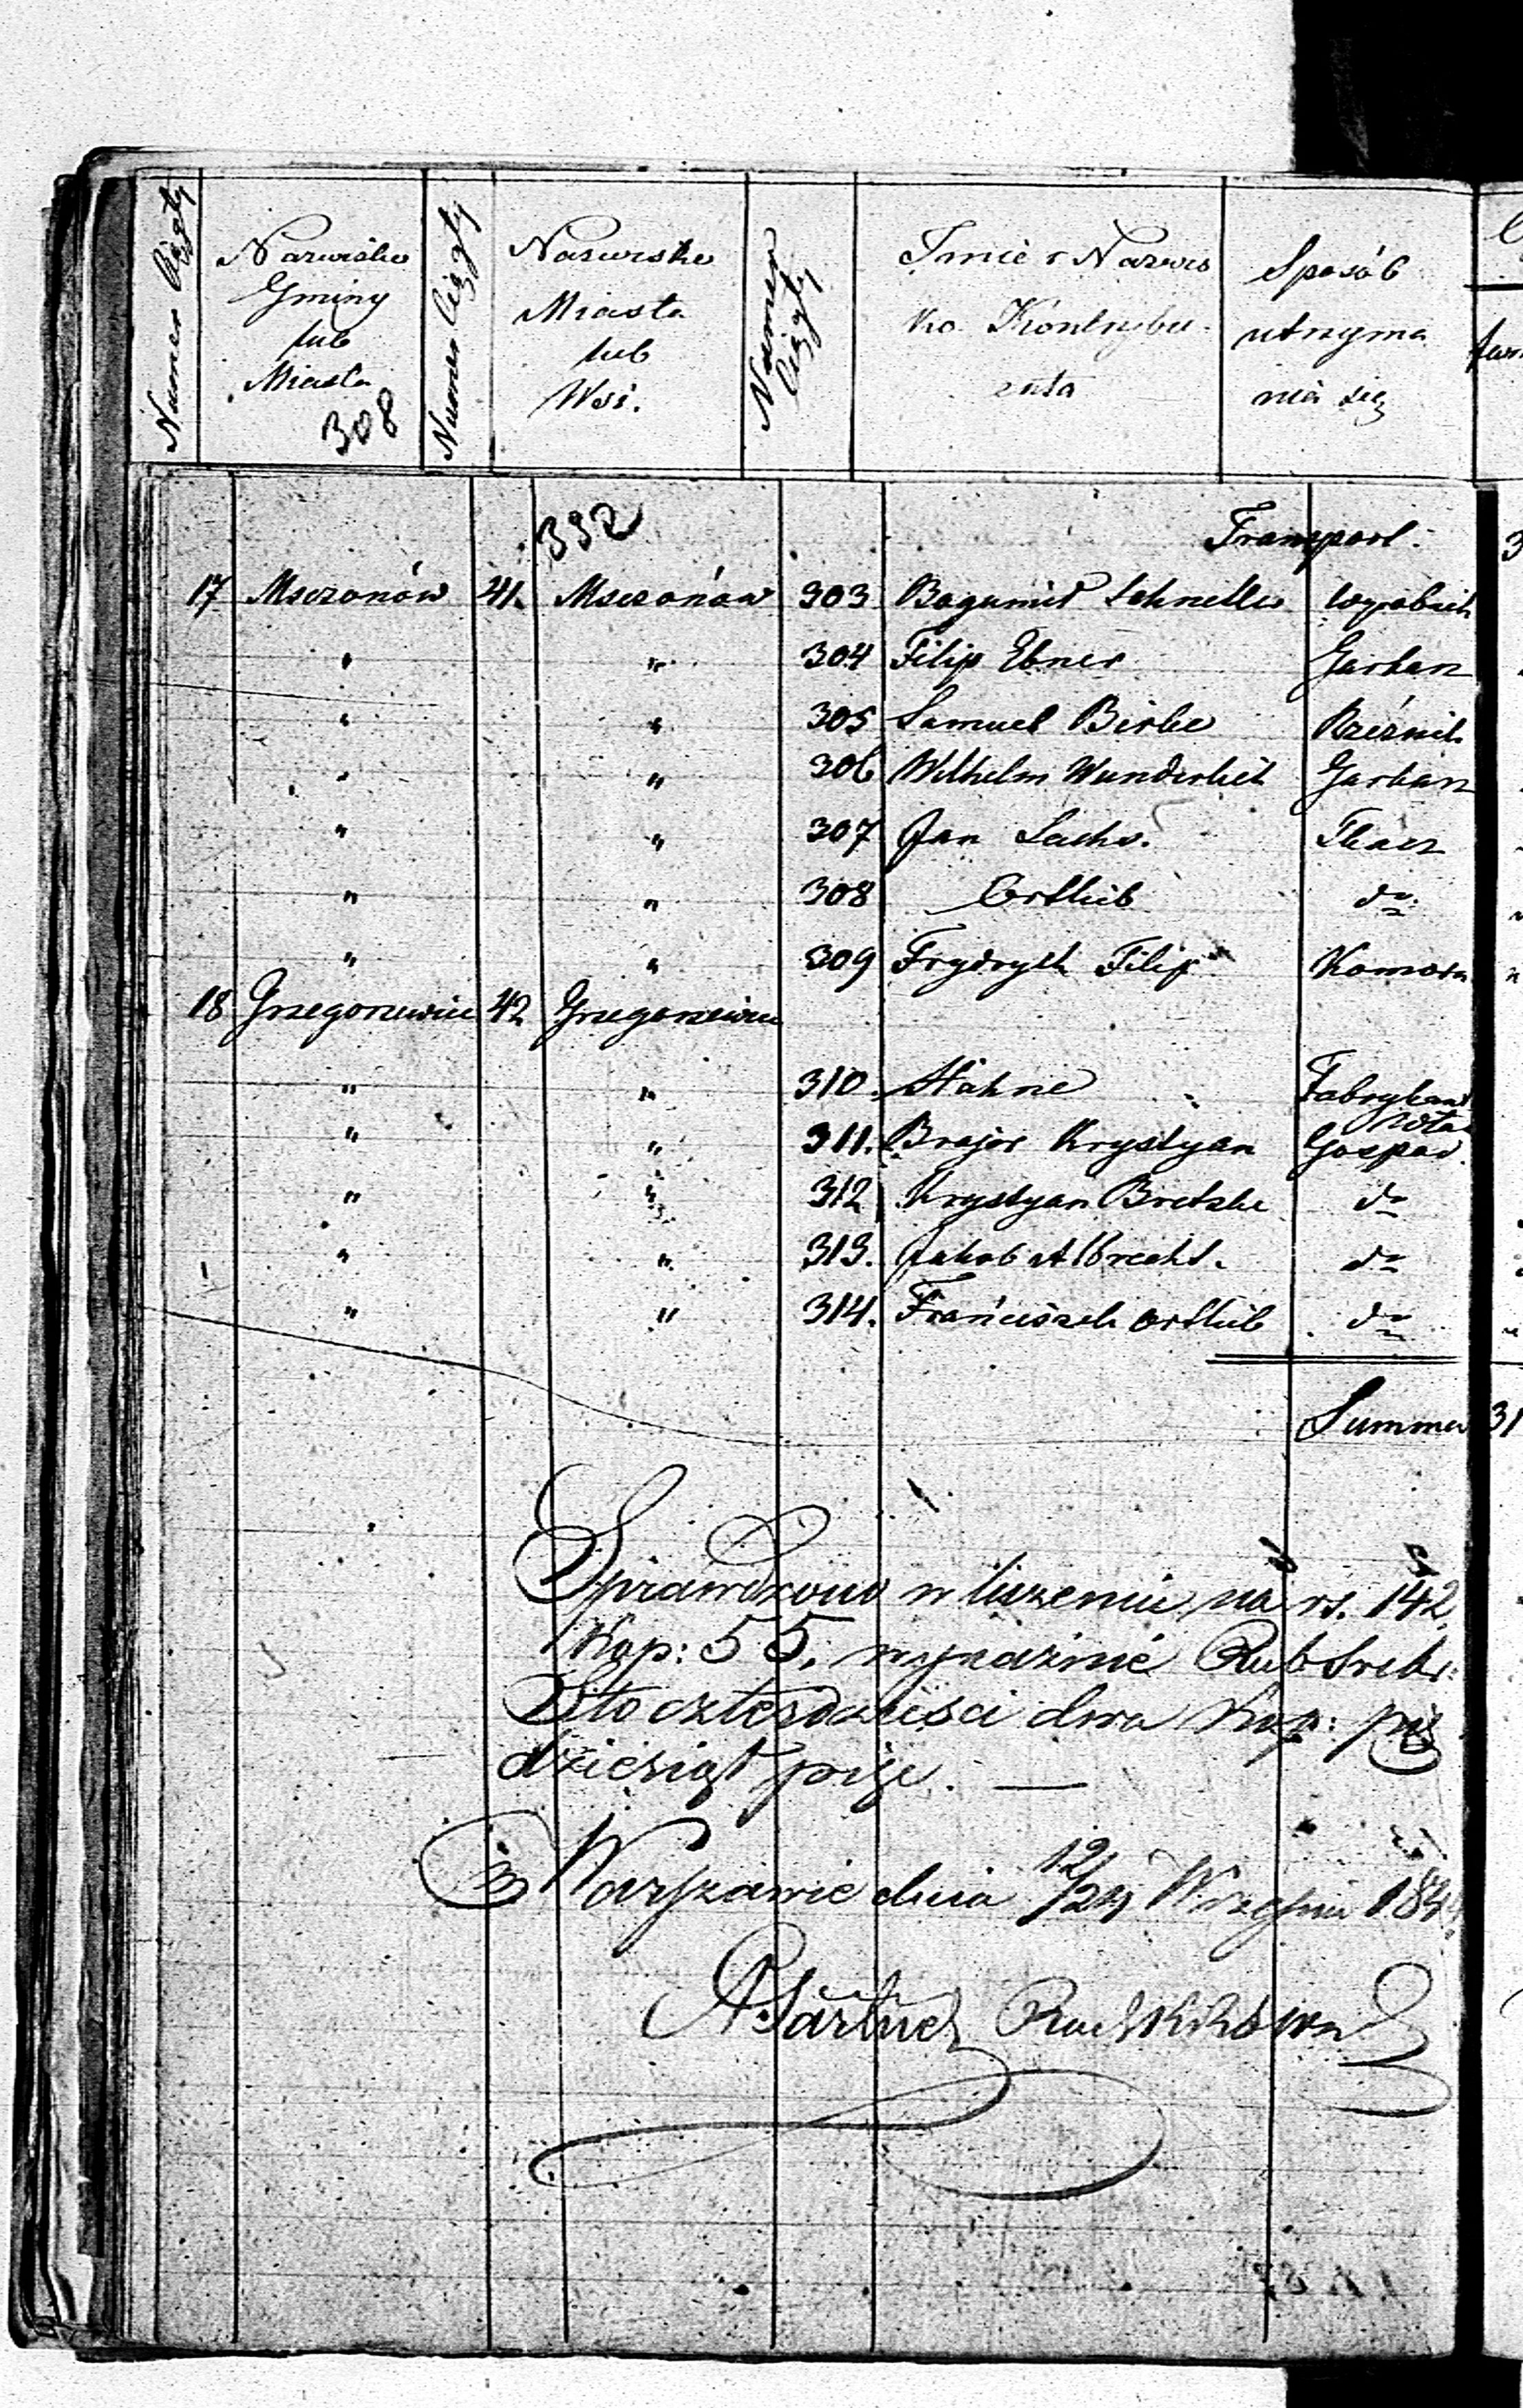 Numer Ciągły
Nazwisko Gminy lub Miasta
308
Numer Ciągły
Nazwisko Miasta lub Wsi.
Numer Ciągły
Imie i Nazwis
ko Kontrybu-
enta
Sposób
utrzyma
nia się
392
Transport.
17 Mszczonów 41. Mszczonów 303 Bogumił Schneller wyrobnik
" " 304 Filip Ebner Garbarz
" " 305 Samuel Birke Rzeźnik
" " 306 Wilhelm Wunderlich Garbarz
" " 307 Jan Sachs. Tkacz
" " 308 Ortlieb do
" " 309 Frydrych Filip Komorn
18 Grzegorzewice 42 Grzegorzewice
" " 310. Hahne Fabrykant
" " 311. Brajer Krystyan Gospod.
" " 312 Krystyan Bretzke do
" " 313. Jakob Albrecht. do
" " 314. Franciszek Ortlieb do
Summa 31
Sprawdzono w liczeniu na rs. 142
Kop: 55. wyraźnie Rub Sreb:
Sto czterdzieści dwa Kop: pięć
dziesiąt pięć. —
w Warszawie dnia 12/24 Września 184